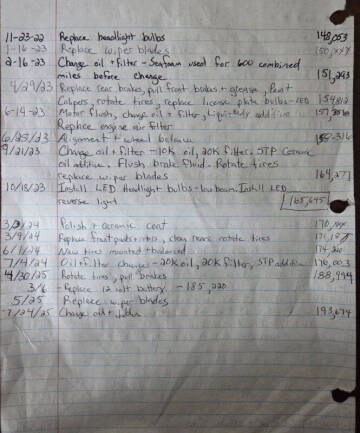 11-23-22 Replace headlight bulbs 148,053
1-16-23 Replace wiper blades
2-16-23 Change oil + filter - Seafoam used for 600 combined
miles before change 151,243
4/29/23 Replace rear brakes, pull front brakes + grease, Paint
Calipers, rotate tires, replace license plate bulbs - LED 154812
6-14-23 Motor flush, change oil + filter, Liqui-Moly additive
Replace engine air filter
6/25/23 Alignment + wheel balance
9/21/23 Change oil + filter - 10K oil, 20K filter, STP Ceramic
oil additive. Flush brake fluid - Rotate tires
replace wiper blades 164,271
10/18/23 Install LED Headlight bulbs - low beam. Install LED
reverse light 165,645
/24 Polish + Ceramic coat
3/9/24 Replace front pads + rotors, clean rears rotate tires
6/1/24 New tires mounted + balanced
7/4/24 Oil + filter change - 20K oil, 20K filter, STP additive 176,003
4/30/25 Rotate tires, pull brakes 188,994
3/6 - Replace 12 volt battery - 185,220
5/25 Replace wiper blades
7/24/25 Change oil + 193,674